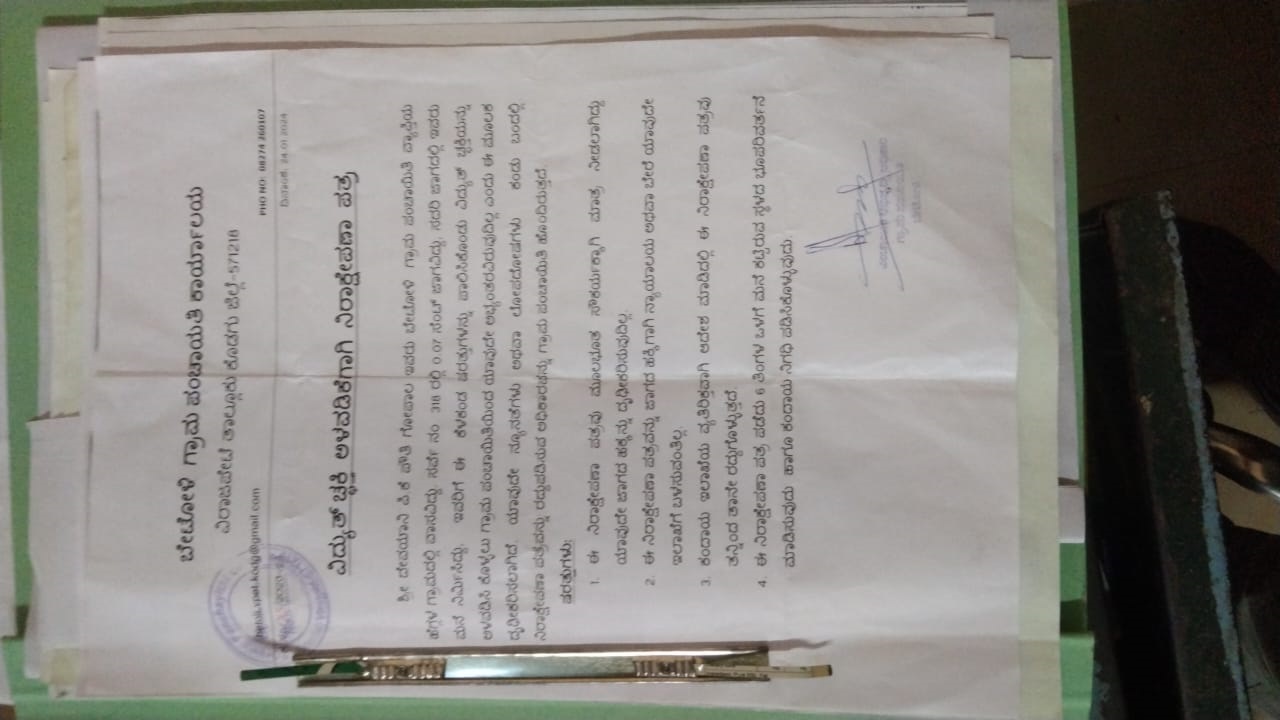 ಬೇಟೋಳಿ ಗ್ರಾಮ ಪಂಚಾಯಿತಿ ಕಾರ್ಯಾಲಯ
ವಿರಾಜಪೇಟೆ ತಾಲ್ಲೂಕು ಕೊಡಗು ಜಿಲ್ಲೆ-571218
PHO NO: 08274 260107
ದಿನಾಂಕ: 24.01.2024
ವಿದ್ಯುತ್ ಚ್ಛಕ್ತಿ ಅಳವಡಿಕೆಗಾಗಿ ನಿರಾಕ್ಷೇಪಣಾ ಪತ್ರ
ಶ್ರೀ ದೇವಯಾನಿ ಪಿ.ಕೆ ಗೋಪಾಲ ಇವರು ಬೇಟೋಳಿ ಗ್ರಾಮ ಪಂಚಾಯಿತಿ ವ್ಯಾಪ್ತಿಯ
ಹೆಗ್ಗಳ ಗ್ರಾಮದಲ್ಲಿ ವಾಸವಿದ್ದು, ಸರ್ವೆ ನಂ 318 ರಲ್ಲಿ 0.07 ಸೆಂಟ್ ಜಾಗವಿದ್ದು, ಸದರಿ ಜಾಗದಲ್ಲಿ ಇವರು
ಮನೆ ನಿರ್ಮಿಸಿದ್ದು, ಇವರಿಗೆ ಈ ಕೆಳಕಂಡ ಷರತ್ತುಗಳನ್ನು ಪಾಲಿಸಿಕೊಂಡು ವಿದ್ಯುತ್ ಚ್ಛಕ್ತಿಯನ್ನು
ಅಳವಡಿಸಿ ಕೊಳ್ಳಲು ಗ್ರಾಮ ಪಂಚಾಯಿತಿಯಿಂದ ಯಾವುದೇ ಅಭ್ಯಂತರವಿರುವುದಿಲ್ಲ ಎಂದು ಈ ಮೂಲಕ
ದೃಢೀಕರಿಸಲಾಗಿದೆ. ಯಾವುದೇ ನ್ಯೂನತೆಗಳು ಅಥವಾ ಲೋಪದೋಷಗಳು ಕಂಡು ಬಂದಲ್ಲಿ
ನಿರಾಕ್ಷೇಪಣಾ ಪತ್ರವನ್ನು ರದ್ದುಪಡಿಸುವ ಅಧಿಕಾರವನ್ನು ಗ್ರಾಮ ಪಂಚಾಯಿತಿ ಹೊಂದಿರುತ್ತದೆ.
ಷರತ್ತುಗಳು:
1. ಈ ನಿರಾಕ್ಷೇಪಣಾ ಪತ್ರವು ಮೂಲಭೂತ ಸೌಕರ್ಯಕ್ಕಾಗಿ ಮಾತ್ರ ನೀಡಲಾಗಿದ್ದು
ಯಾವುದೇ ಜಾಗದ ಹಕ್ಕನ್ನು ದೃಢೀಕರಿಸುವುದಿಲ್ಲ.
2. ಈ ನಿರಾಕ್ಷೇಪಣಾ ಪತ್ರವನ್ನು ಜಾಗದ ಹಕ್ಕಿಗಾಗಿ ನ್ಯಾಯಾಲಯ ಅಥವಾ ಬೇರೆ ಯಾವುದೇ
ಇಲಾಖೆಗೆ ಬಳಸುವಂತಿಲ್ಲ.
3. ಕಂದಾಯ ಇಲಾಖೆಯ ವ್ಯತಿರಿಕ್ತವಾಗಿ ಆದೇಶ ಮಾಡಿದಲ್ಲಿ ಈ ನಿರಾಕ್ಷೇಪಣಾ ಪತ್ರವು
ತನ್ನಿಂದ ತಾನೇ ರದ್ದುಗೊಳ್ಳುತ್ತದೆ.
4. ಈ ನಿರಾಕ್ಷೇಪಣಾ ಪತ್ರ ಪಡೆದು 6 ತಿಂಗಳ ಒಳಗೆ ಮನೆ ಕಟ್ಟಿರುವ ಸ್ಥಳದ ಭೂಪರಿವರ್ತನೆ
ಮಾಡಿಸುವುದು ಹಾಗೂ ಕಂದಾಯ ನಿಗಧಿ ಪಡಿಸಿಕೊಳ್ಳುವುದು.